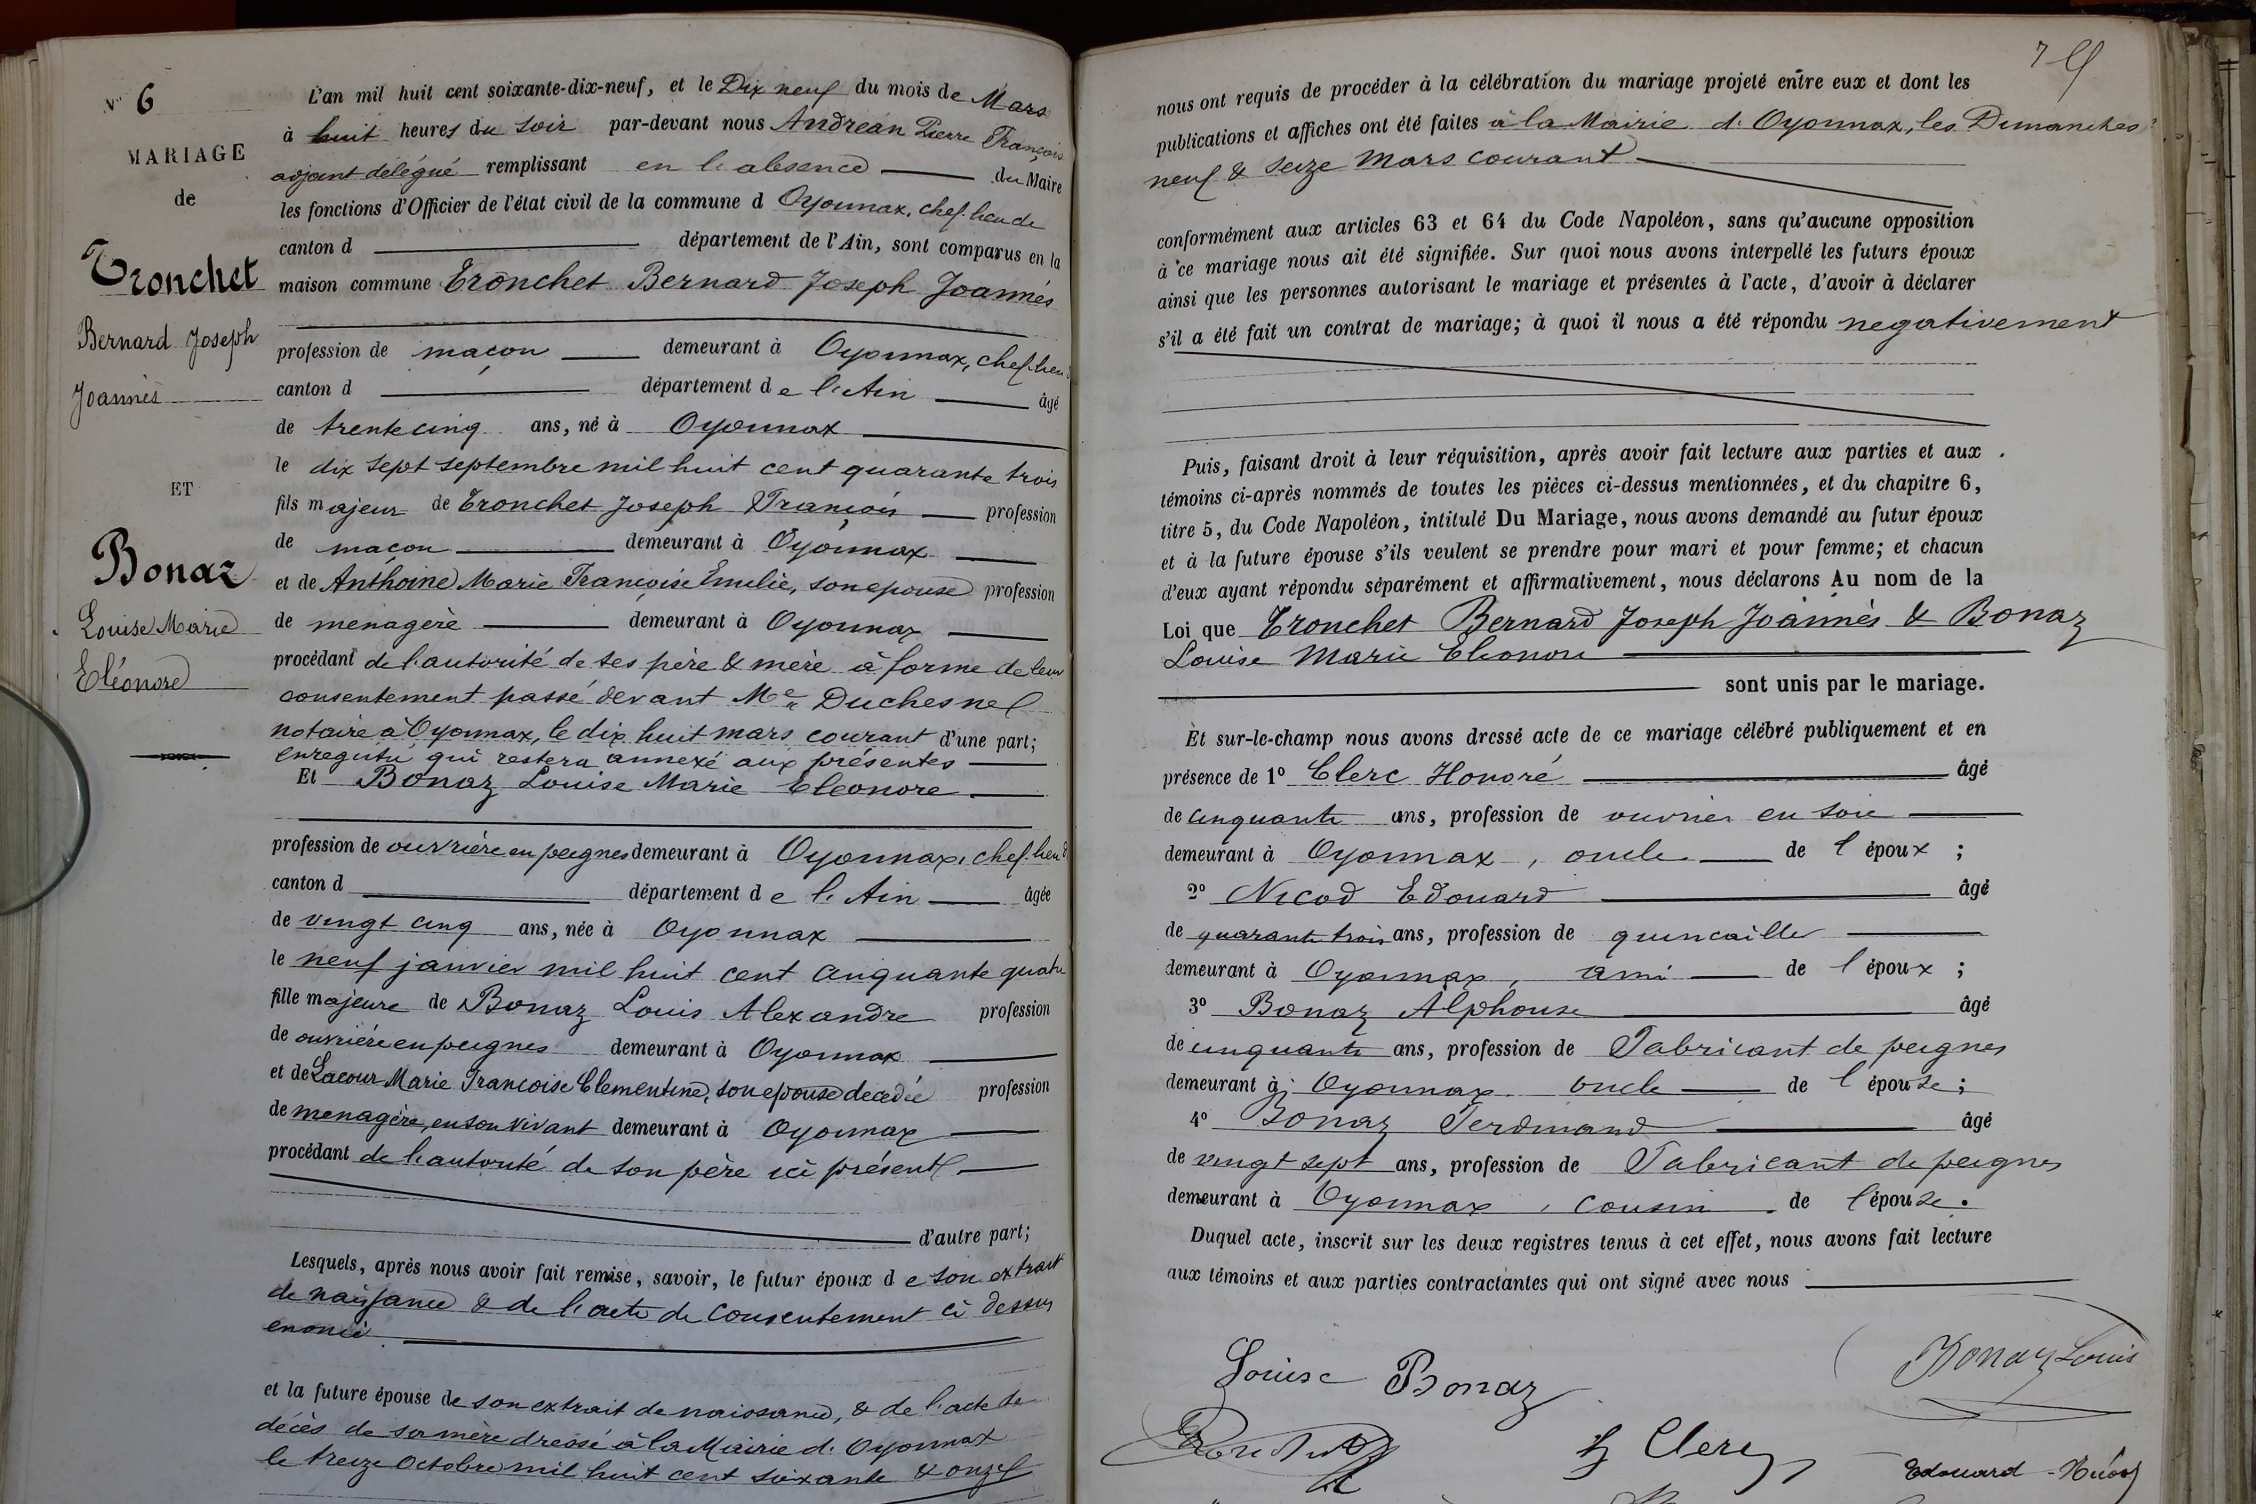 N° 6
MARIAGE
de
Tronchet
Bernard Joseph
Joannès
ET
Bonaz
Louise Marie
Eléonore
L'an mil huit cent soixante-dix-neuf, et le Dix neuf du mois de Mars
à huit heures du soir par-devant nous Andréan Pierre François
adjoint délégué remplissant en l'absence du Maire
les fonctions d'Officier de l'état civil de la commune d Oyonnax, chef-lieu de
canton d département de l'Ain, sont comparus en la
maison commune Tronchet Bernard Joseph Joannès
profession de maçon demeurant à Oyonnax, chef-lieu
canton d département de l'Ain âgé
de trente cinq ans, né à Oyonnax
le dix sept septembre mil huit cent quarante trois
fils majeur de Tronchet Joseph François profession
de maçon demeurant à Oyonnax
et de Anthoine Marie Françoise Emélie, son epouse profession
de menagère demeurant à Oyonnax
procédant de l'autorité de ses père & mère à forme de leur
consentement passé devant Me Duchesnel
notaire à Oyonnax, le dix huit mars courant d'une part;
enregistré qui restera annexé aux présentes
Et Bonaz Louise Marie Eleonore
profession de ouvrière en peignes demeurant à Oyonnax, chef-lieu d
canton d département de l'Ain âgée
de vingt cinq ans, née à Oyonnax
le neuf janvier mil huit cent cinquante quatre
fille majeure de Bonaz Louis Alexandre profession
de ouvrière en peignes demeurant à Oyonnax
et de Lacour Marie Françoise Clementine, son epouse decedée profession
de menagère, en son vivant demeurant à Oyonnax
procédant de l'autorité de son père ici présent
d'autre part;
Lesquels, après nous avoir fait remise, savoir, le futur époux de son extrait
de naissance & de l'acte de consentement ci dessus
enoncé
et la future épouse de son extrait de naissance, & de l'acte de
décès de sa mère dressé à la Mairie d'Oyonnax
le treize Octobre mil huit cent soixante & onze
nous ont requis de procéder à la célébration du mariage projeté entre eux et dont les
publications et affiches ont été faites à la Mairie d'Oyonnax, les Dimanches
neuf & seize Mars courant
conformément aux articles 63 et 64 du Code Napoléon, sans qu'aucune opposition
à ce mariage nous ait été signifiée. Sur quoi nous avons interpellé les futurs époux
ainsi que les personnes autorisant le mariage et présentes à l'acte, d'avoir à déclarer
s'il a été fait un contrat de mariage; à quoi il nous a été répondu negativement
Puis, faisant droit à leur réquisition, après avoir fait lecture aux parties et aux
témoins ci-après nommés de toutes les pièces ci-dessus mentionnées, et du chapitre 6,
titre 5, du Code Napoléon, intitulé Du Mariage, nous avons demandé au futur époux
et à la future épouse s'ils veulent se prendre pour mari et pour femme; et chacun
d'eux ayant répondu séparément et affirmativement, nous déclarons Au nom de la
Loi que Tronchet Bernard Joseph Joannès & Bonaz
Louise Marie Eleonore
sont unis par le mariage.
Et sur-le-champ nous avons dressé acte de ce mariage célébré publiquement et en
présence de 1° Clerc Honoré âgé
de cinquante ans, profession de ouvrier en soie
demeurant à Oyonnax, oncle de l'époux;
2° Nicod Edouard âgé
de quarante trois ans, profession de quincailler
demeurant à Oyonnax, ami de l'époux;
3° Bonaz Alphonse âgé
de cinquante ans, profession de Fabricant de peignes
demeurant à Oyonnax oncle de l'épouse;
4° Bonaz Ferdinand âgé
de vingt sept ans, profession de Fabricant de peignes
demeurant à Oyonnax, cousin de l'épouse.
Duquel acte, inscrit sur les deux registres tenus à cet effet, nous avons fait lecture
aux témoins et aux parties contractantes qui ont signé avec nous
Louise Bonaz
Bonaz Louis
Tronchet
H Clerc
Edouard Nicod